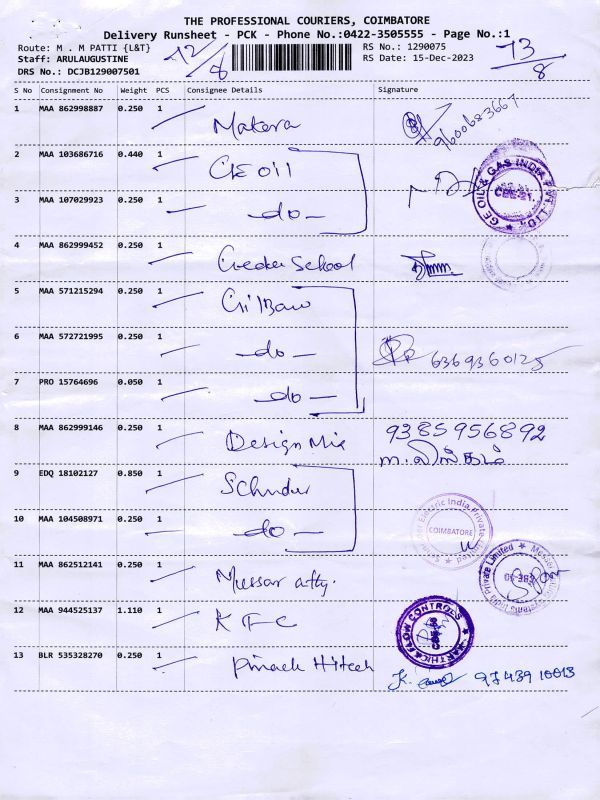 THE PROFESSIONAL COURIERS, COIMBATORE
Delivery Runsheet - PCK - Phone No.:0422-3505555 - Page No.:1
Route: M . M PATTI {L&T} RS No.: 1290075
Staff: ARULAUGUSTINE RS Date: 15-Dec-2023
DRS No.: DCJB129007501
12/8
13/8
S No Consignment No Weight PCS Consignee Details Signature
1 MAA 862998887 0.250 1 Makera 9600683667
2 MAA 103686716 0.440 1 GE oil
GE OIL & GAS INDIA PVT. LTD. CBE-21.
3 MAA 107029923 0.250 1 -do-
4 MAA 862999452 0.250 1 School
5 MAA 571215294 0.250 1
6 MAA 572721995 0.250 1 -do- 6369360125
7 PRO 15764696 0.050 1 -do-
8 MAA 862999146 0.250 1 Design Mix 9385956892
9 EDQ 18102127 0.850 1
10 MAA 104508971 0.250 1 -do-
Electric India Private Limited COIMBATORE
11 MAA 862512141 0.250 1
India Private Limited
12 MAA 944525137 1.110 1 KFC
KARTHICK FLOW CONTROLS
13 BLR 535328270 0.250 1 Pinack Hitech 9743910013